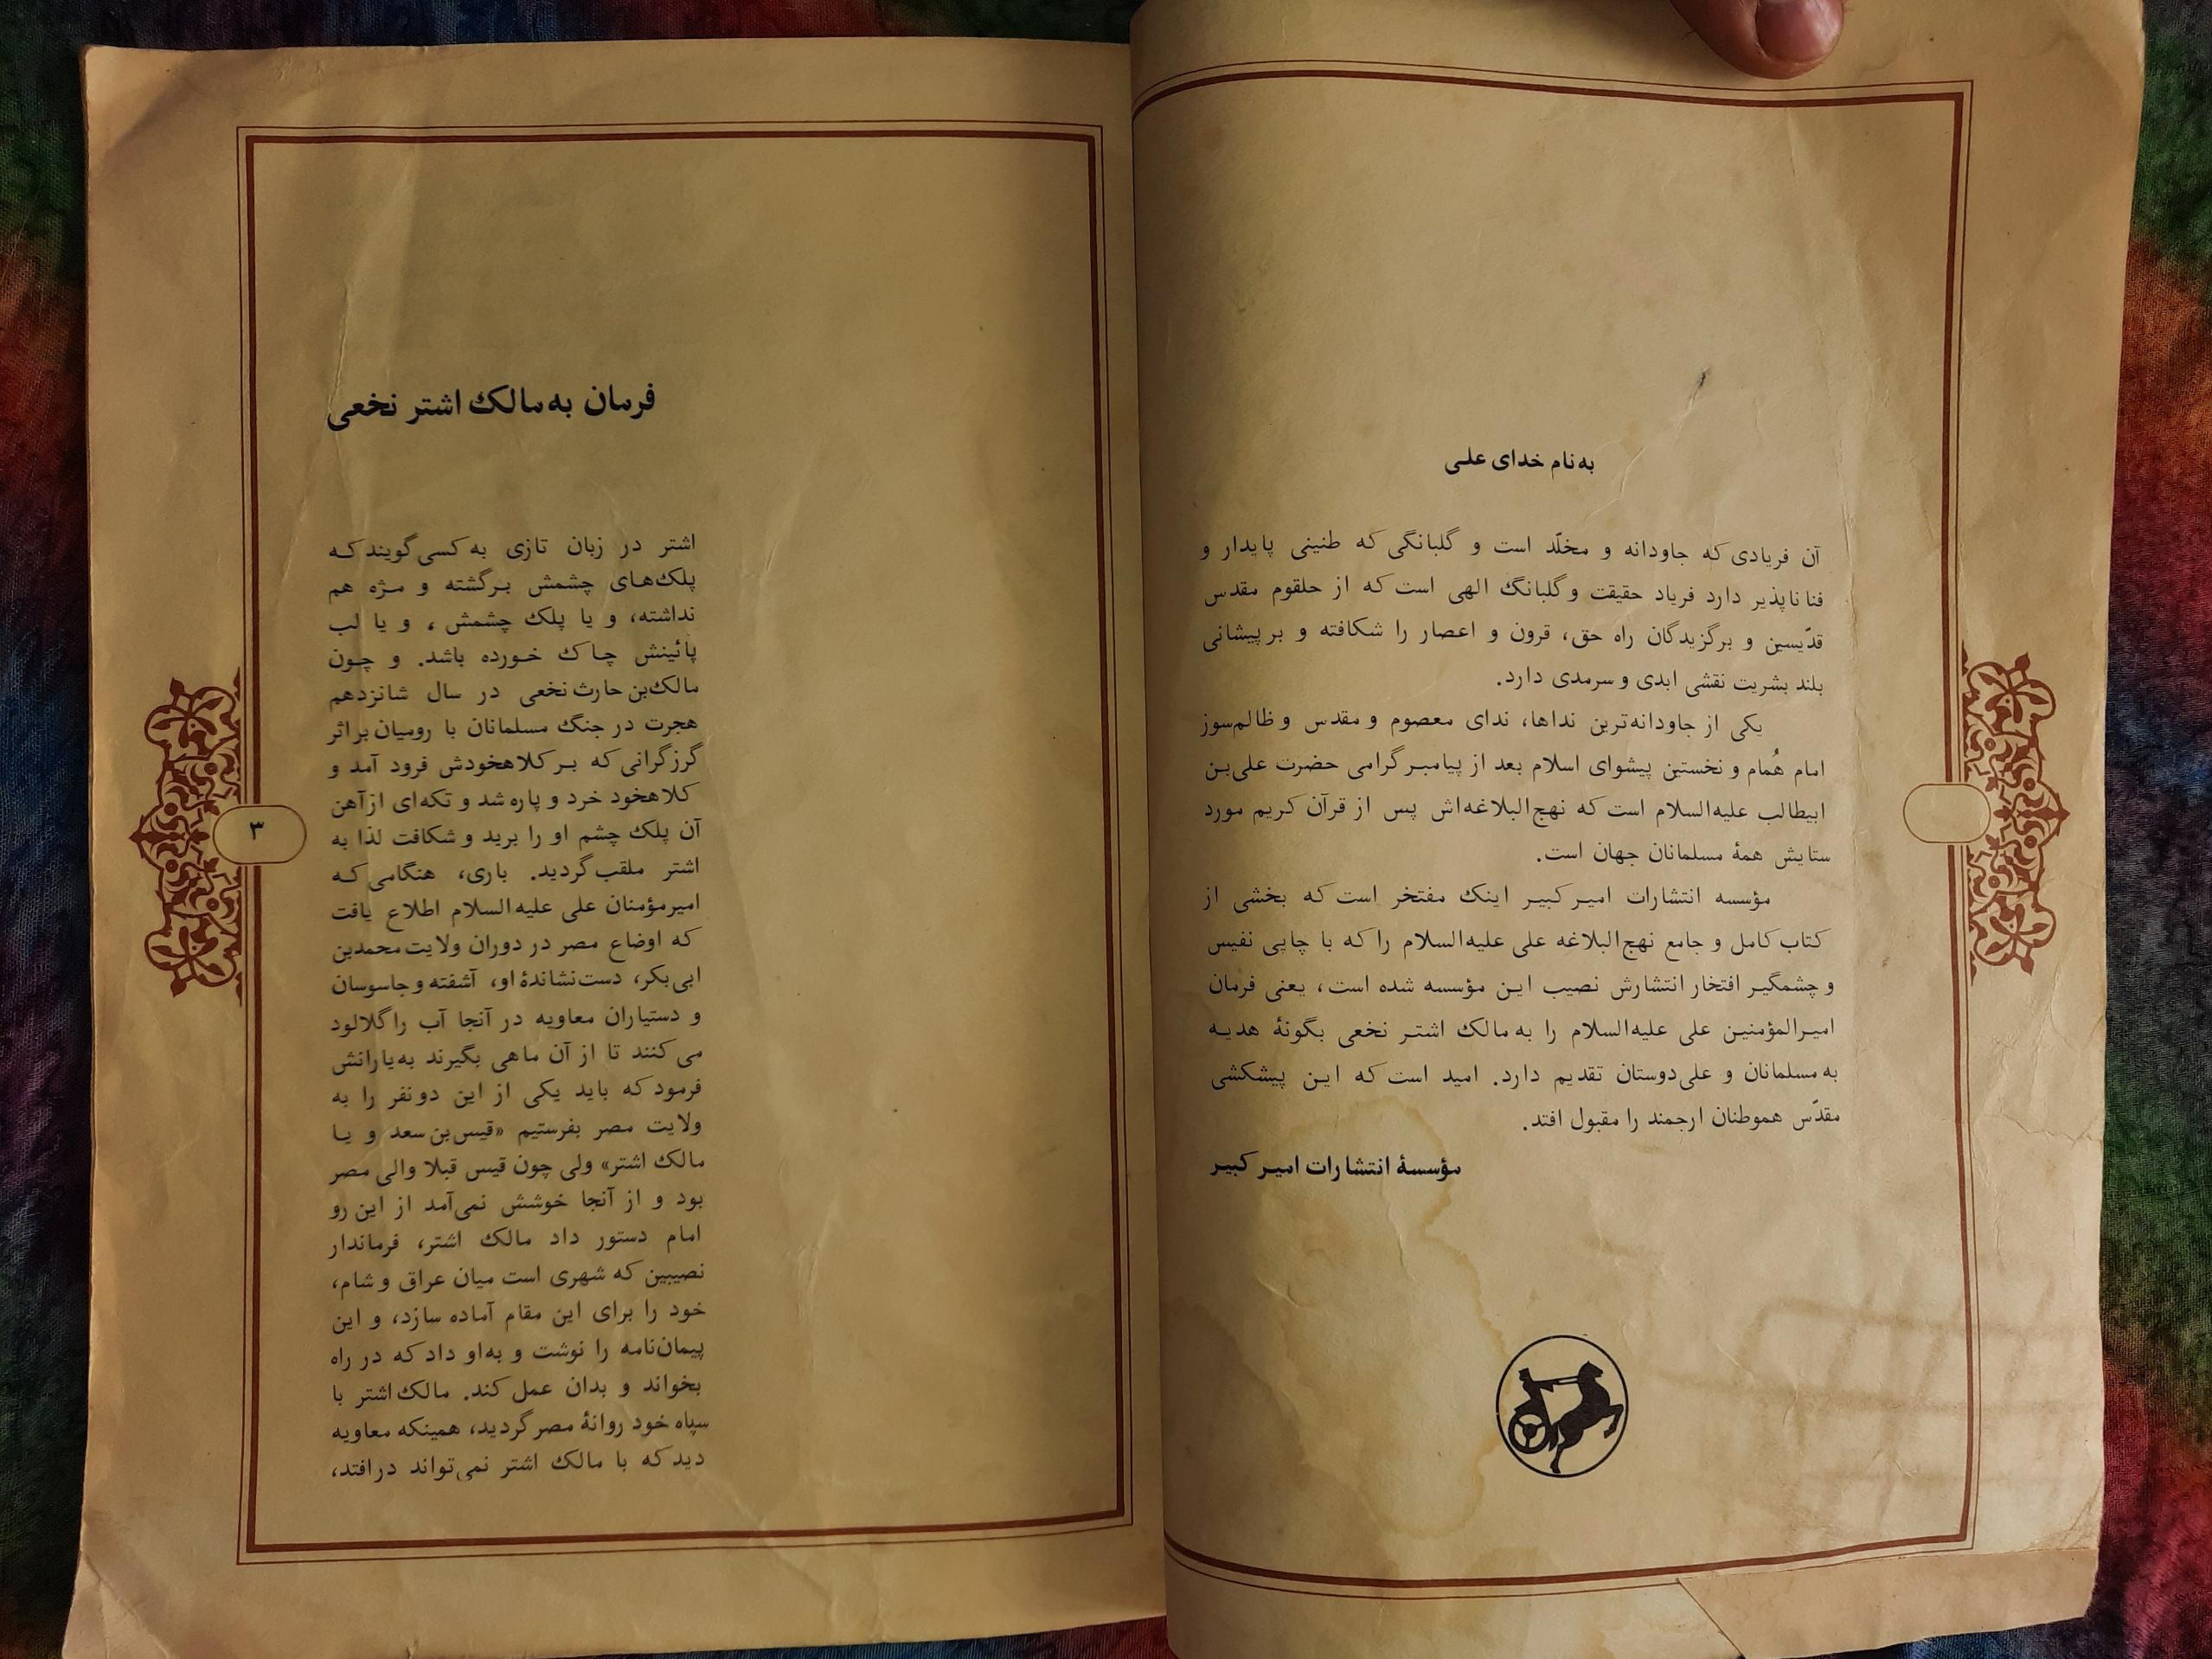 به‌نام خدای علی
آن فریادی که جاودانه و مخلّد است و گلبانگی که طنینی پایدار و
فناناپذیر دارد فریاد حقیقت و گلبانگ الهی است که از حلقوم مقدس
قدّیسین و برگزیدگان راه حق، قرون و اعصار را شکافته و بر پیشانی
بلند بشریت نقشی ابدی و سرمدی دارد.
یکی از جاودانه‌ترین نداها، ندای معصوم و مقدس و ظالم‌سوز
امام هُمام و نخستین پیشوای اسلام بعد از پیامبر گرامی حضرت علی‌بن
ابیطالب علیه‌السلام است که نهج‌البلاغه‌اش پس از قرآن کریم مورد
ستایش همهٔ مسلمانان جهان است.
مؤسسه انتشارات امیرکبیر اینک مفتخر است که بخشی از
کتاب کامل و جامع نهج‌البلاغه علی علیه‌السلام را که با چاپی نفیس
و چشمگیر افتخار انتشارش نصیب این مؤسسه شده است، یعنی فرمان
امیرالمؤمنین علی علیه‌السلام را به مالک اشتر نخعی بگونهٔ هدیه
به مسلمانان و علی‌دوستان تقدیم دارد. امید است که این پیشکشی
مقدّس هموطنان ارجمند را مقبول افتد.
مؤسسهٔ انتشارات امیرکبیر
فرمان به مالک اشتر نخعی
اشتر در زبان تازی به کسی گویند که
پلک‌های چشمش برگشته و مژه هم
نداشته، و یا پلک چشمش، و یا لب
پائینش چاک خورده باشد. و چون
مالک‌بن حارث نخعی در سال شانزدهم
هجرت در جنگ مسلمانان با رومیان بر اثر
گرزگرانی که بر کلاهخودش فرود آمد و
کلاهخود خرد و پاره شد و تکه‌ای از آهن
آن پلک چشم او را برید و شکافت لذا به
اشتر ملقب گردید. باری، هنگامی که
امیرمؤمنان علی علیه‌السلام اطلاع یافت
که اوضاع مصر در دوران ولایت محمدبن
ابی‌بکر، دست‌نشاندهٔ او، آشفته و جاسوسان
و دستیاران معاویه در آنجا آب را گلالود
می‌کنند تا از آن ماهی بگیرند به یارانش
فرمود که باید یکی از این دو نفر را به
ولایت مصر بفرستیم «قیس‌بن سعد و یا
مالک اشتر» ولی چون قیس قبلا والی مصر
بود و از آنجا خوشش نمی‌آمد از این رو
امام دستور داد مالک اشتر، فرماندار
نصیبین که شهری است میان عراق و شام،
خود را برای این مقام آماده سازد، و این
پیمان‌نامه را نوشت و به‌او داد که در راه
بخواند و بدان عمل کند. مالک اشتر با
سپاه خود روانهٔ مصر گردید، همینکه معاویه
دید که با مالک اشتر نمی‌تواند درافتد،
۳